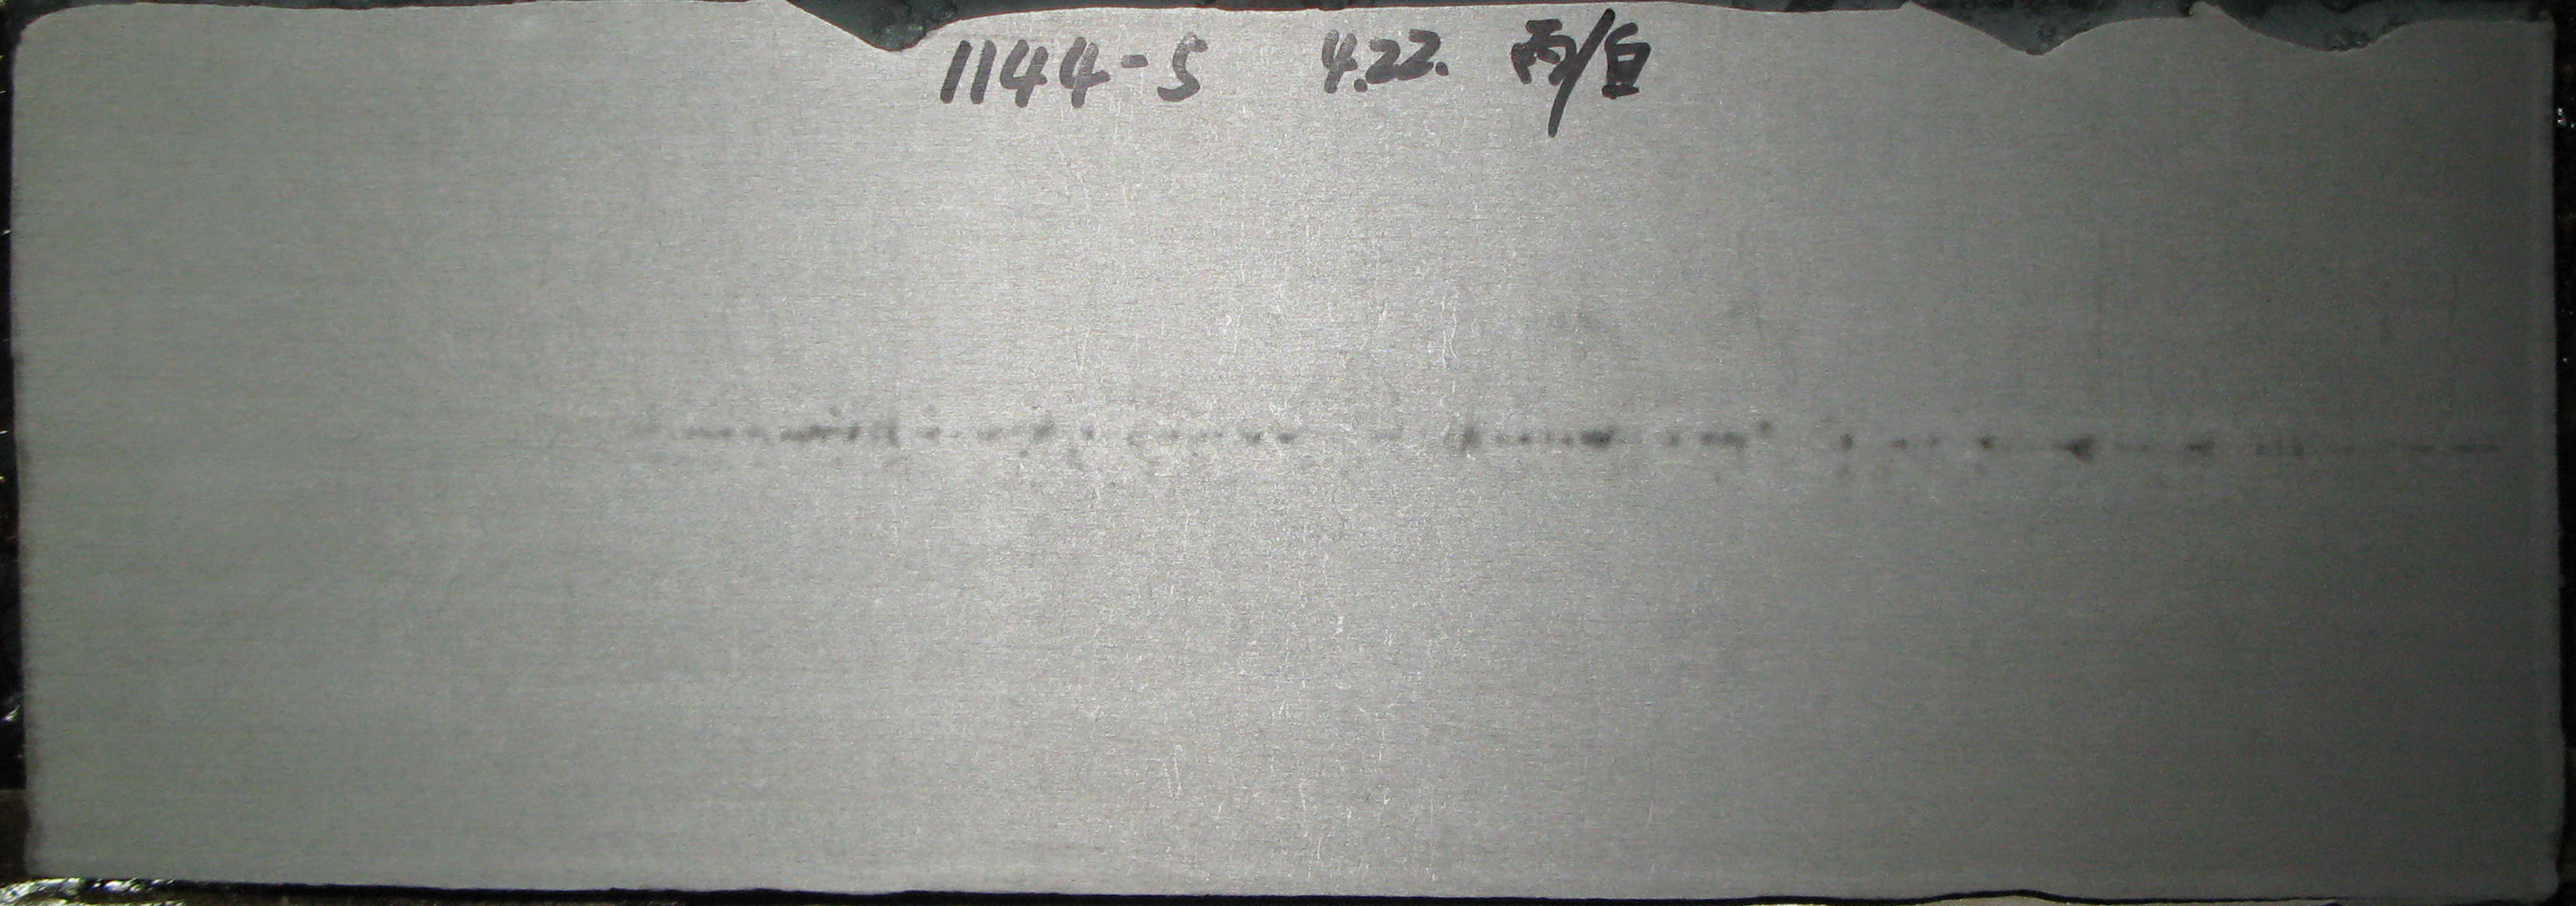 1144-5 4.22. 丙/白